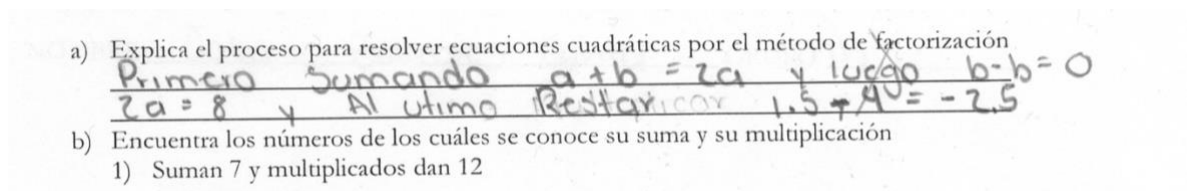 a) Explica el proceso para resolver ecuaciones cuadráticas por el método de factorización
Primero Sumando a + b = 2a y luego b - b = 0
2a = 8 y Al utimo Restar 1.5 - 4 = - 2.5
b) Encuentra los números de los cuáles se conoce su suma y su multiplicación
1) Suman 7 y multiplicados dan 12